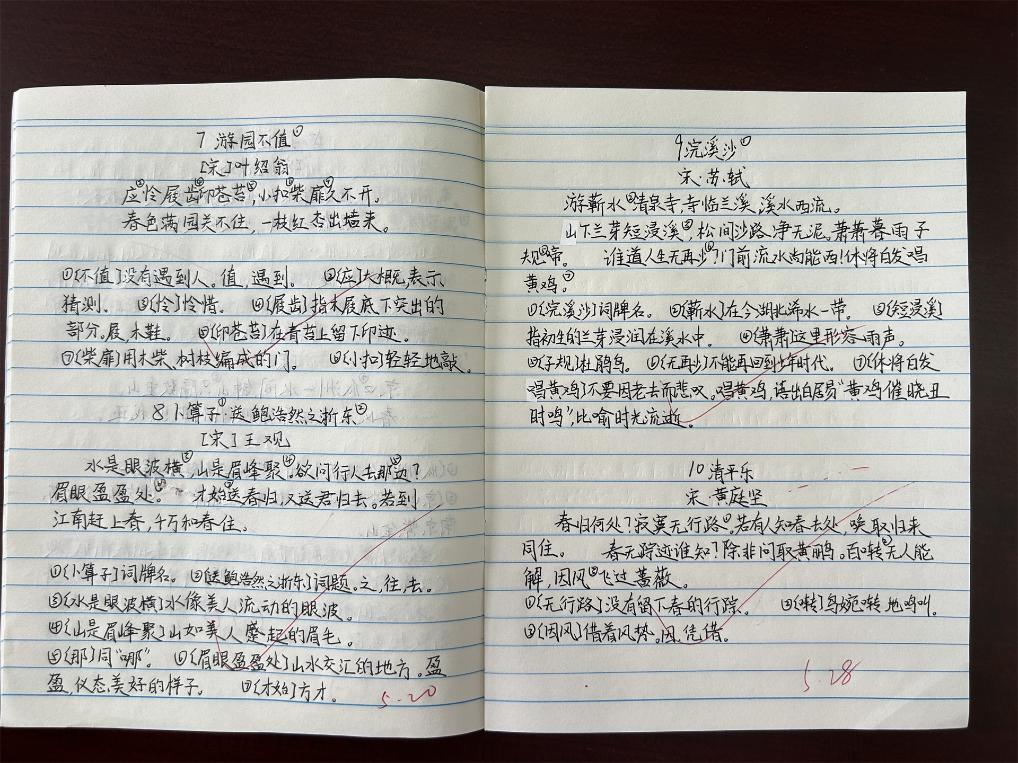 7 游园不值①
[宋]叶绍翁
应②怜③屐齿④印苍苔⑤,小扣⑦柴扉⑥久不开。
春色满园关不住,一枝红杏出墙来。
①[不值]没有遇到人。值,遇到。 ②[应]大概,表示
猜测。 ③[怜]怜惜。 ④[屐齿]指木屐底下突出的
部分,屐,木鞋。 ⑤[印苍苔]在青苔上留下印迹。
⑥[柴扉]用木柴、树枝编成的门。 ⑦[小扣]轻轻地敲。
8 卜算子①·送鲍浩然之浙东②
[宋]王观
水是眼波横③,山是眉峰聚④。欲问行人去那⑤边?
眉眼盈盈处⑥。 才始⑦送春归,又送君归去。若到
江南赶上春,千万和春住。
①[卜算子]词牌名。②[送鲍浩然之浙东]词题。之,往,去。
③[水是眼波横]水像美人流动的眼波。
④[山是眉峰聚]山如美人蹙起的眉毛。
⑤[那]同“哪”。 ⑥[眉眼盈盈处]山水交汇的地方。盈
盈,仪态美好的样子。 ⑦[才始]方才。
5.20
9 浣溪沙①
宋·苏轼
游蕲水②清泉寺,寺临兰溪,溪水西流。
山下兰芽短浸溪③,松间沙路净无泥,萧萧④暮雨子
规⑤啼。 谁道人生无再少⑥?门前流水尚能西!休将白发唱
黄鸡⑦。
①[浣溪沙]词牌名。 ②[蕲水]在今湖北浠水一带。 ③[短浸溪]
指初生的兰芽浸润在溪水中。 ④[萧萧]这里形容雨声。
⑤[子规]杜鹃鸟。 ⑥[无再少]不能再回到少年时代。 ⑦[休将白发
唱黄鸡]不要因老去而悲叹。唱黄鸡,语出白居易“黄鸡催晓丑
时鸣”,比喻时光流逝。
10 清平乐
宋·黄庭坚
春归何处?寂寞无行路①。若有人知春去处,唤取归来
同住。 春无踪迹谁知?除非问取黄鹂。百啭②无人能
解,因风③飞过蔷薇。
①[无行路]没有留下春的行踪。 ②[啭]鸟婉啭地鸣叫。
③[因风]借着风势。因,凭借。
5.28